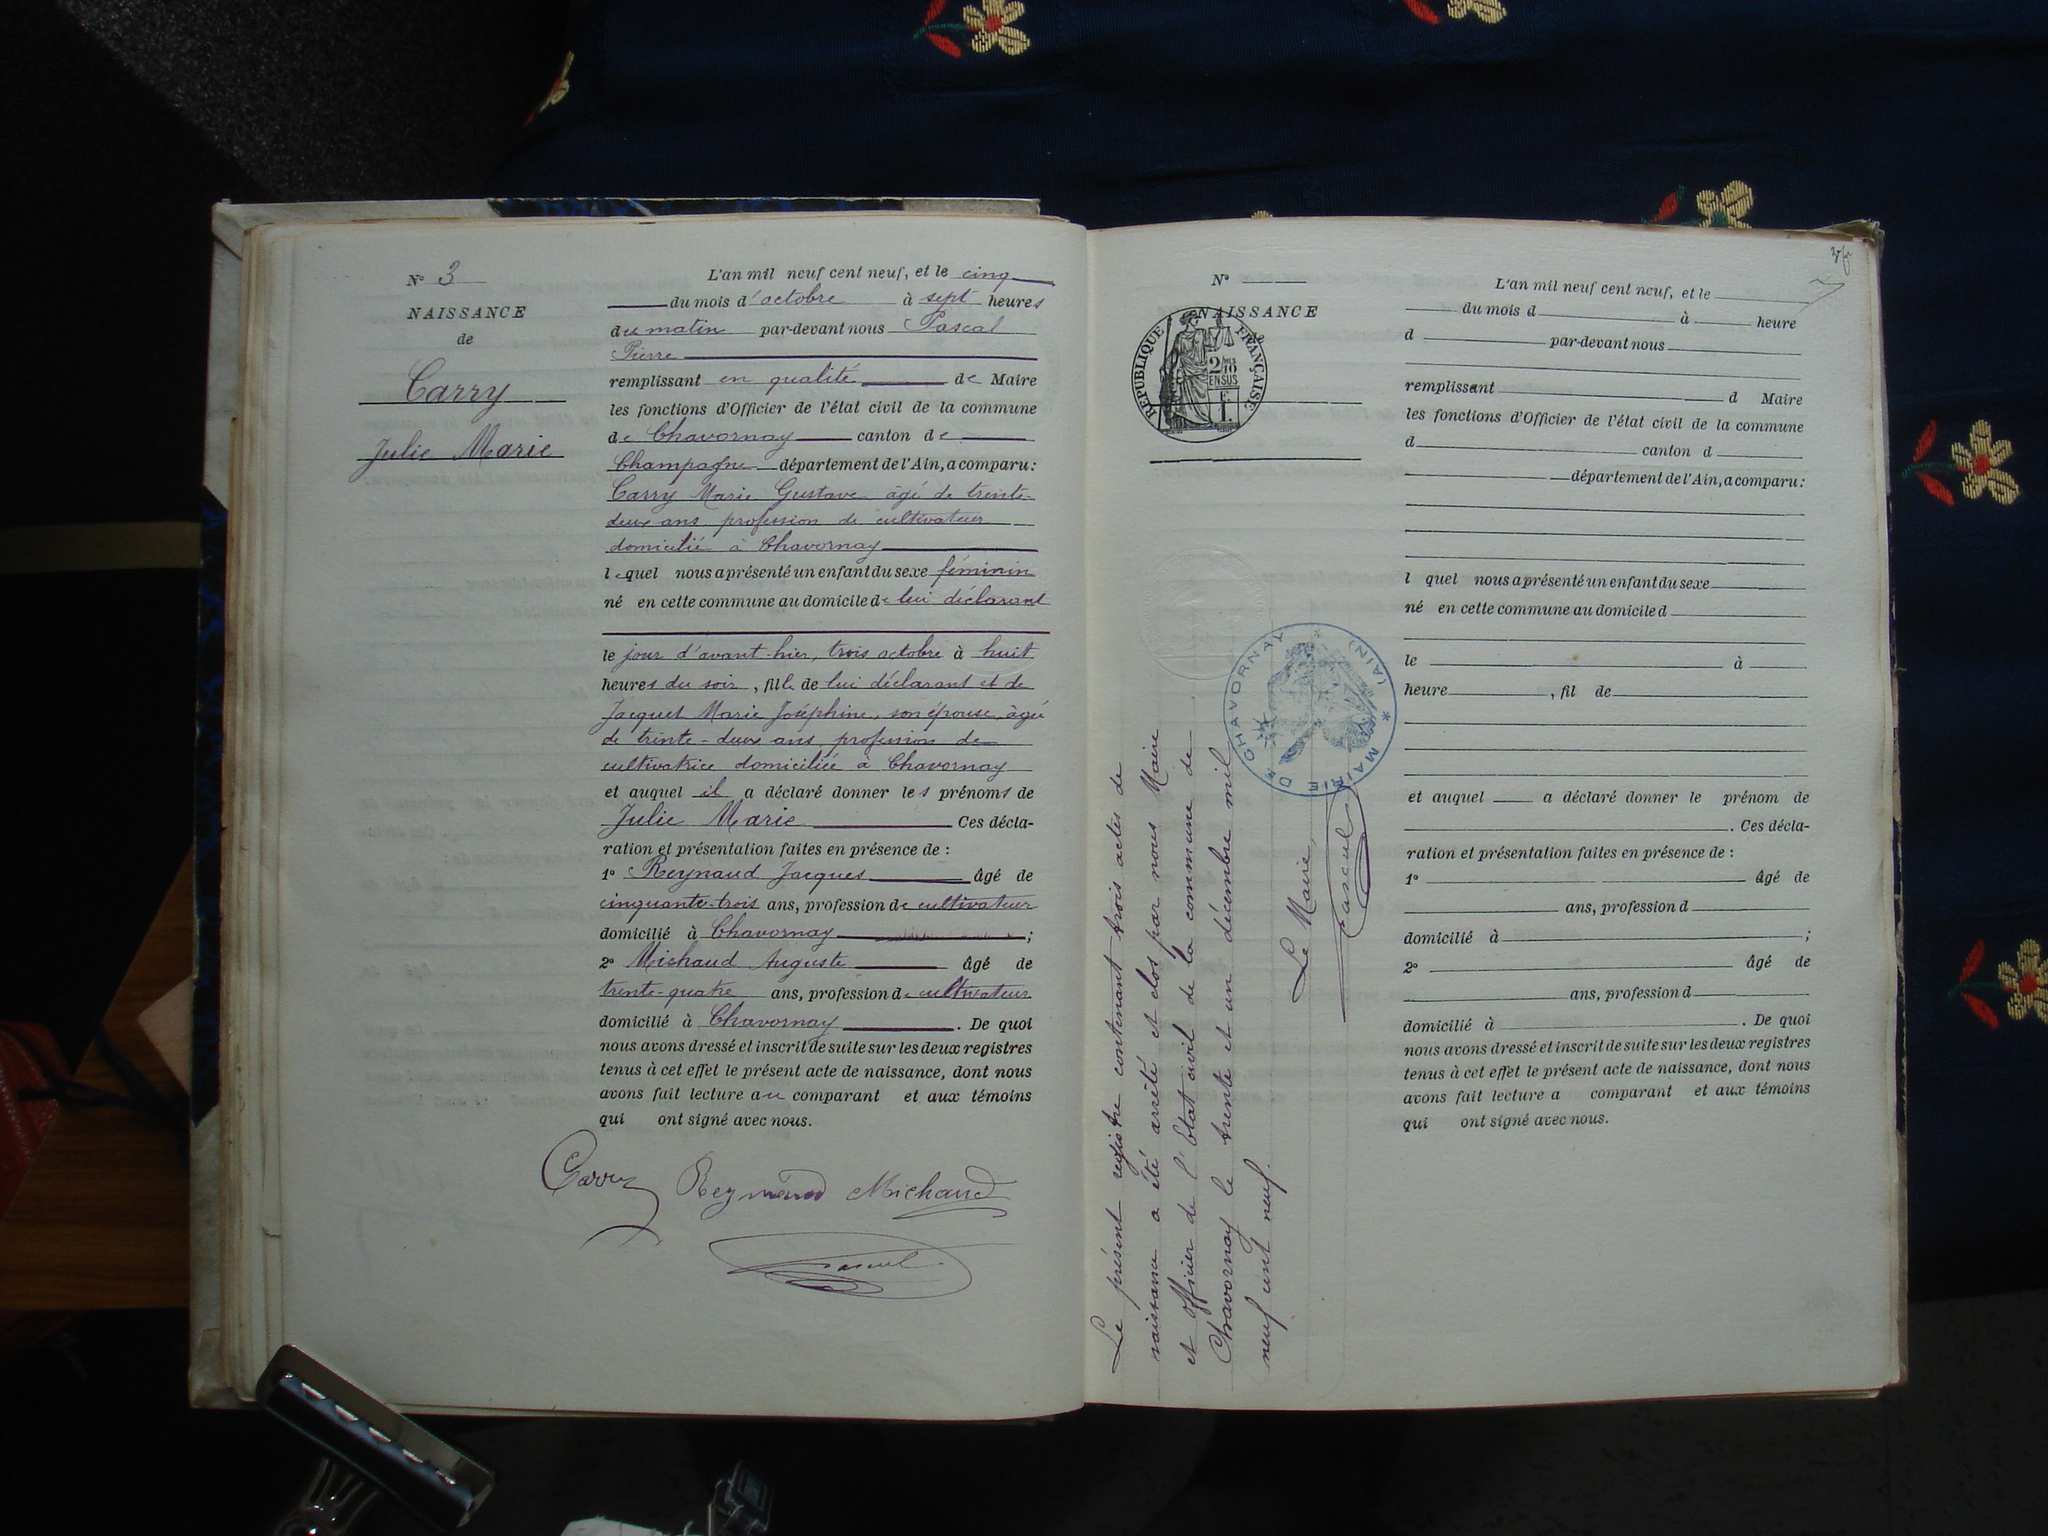 N° 3
NAISSANCE
de
Carry
Julie Marie
L'an mil neuf cent neuf, et le cinq
du mois d'octobre à sept heures
du matin par-devant nous Pascal
Pierre
remplissant en qualité de Maire
les fonctions d'Officier de l'état civil de la commune
de Chavornay canton de
Champagne département de l'Ain, a comparu:
Carry Marie Gustave âgé de trente-
deux ans profession de cultivateur
domicilié à Chavornay
lequel nous a présenté un enfant du sexe féminin
né en cette commune au domicile de lui déclarant
le jour d'avant-hier, trois octobre à huit
heures du soir, fille de lui déclarant et de
Jacquet Marie Joséphine, son épouse, âgée
de trente-deux ans profession de
cultivatrice domiciliée à Chavornay
et auquel il a déclaré donner les prénoms de
Julie Marie Ces décla-
ration et présentation faites en présence de :
1° Reynaud Jacques âgé de
cinquante-trois ans, profession de cultivateur
domicilié à Chavornay ;
2° Michaud Auguste âgé de
trente-quatre ans, profession de cultivateur
domicilié à Chavornay . De quoi
nous avons dressé et inscrit de suite sur les deux registres
tenus à cet effet le présent acte de naissance, dont nous
avons fait lecture au comparant et aux témoins
qui ont signé avec nous.
Carry Reynaud Michaud
Pascal
N°
NAISSANCE
RÉPUBLIQUE FRANÇAISE
2/10
EN SUS
1 F.
L'an mil neuf cent neuf, et le
du mois d à heure
d par-devant nous
remplissant d Maire
les fonctions d'Officier de l'état civil de la commune
d canton d
département de l'Ain, a comparu:
l quel nous a présenté un enfant du sexe
né en cette commune au domicile d
le à
heure , fil de
et auquel a déclaré donner le prénom de
. Ces décla-
ration et présentation faites en présence de :
1° âgé de
ans, profession d
domicilié à ;
2° âgé de
ans, profession d
domicilié à . De quoi
nous avons dressé et inscrit de suite sur les deux registres
tenus à cet effet le présent acte de naissance, dont nous
avons fait lecture a comparant et aux témoins
qui ont signé avec nous.
MAIRIE DE CHAVORNAY (AIN)
Le présent registre contenant trois actes de
naissance a été arrêté et clos par nous Maire
et officier de l'état civil de la commune de
Chavornay le trente et un décembre mil
neuf cent neuf.
Le Maire,
Pascal